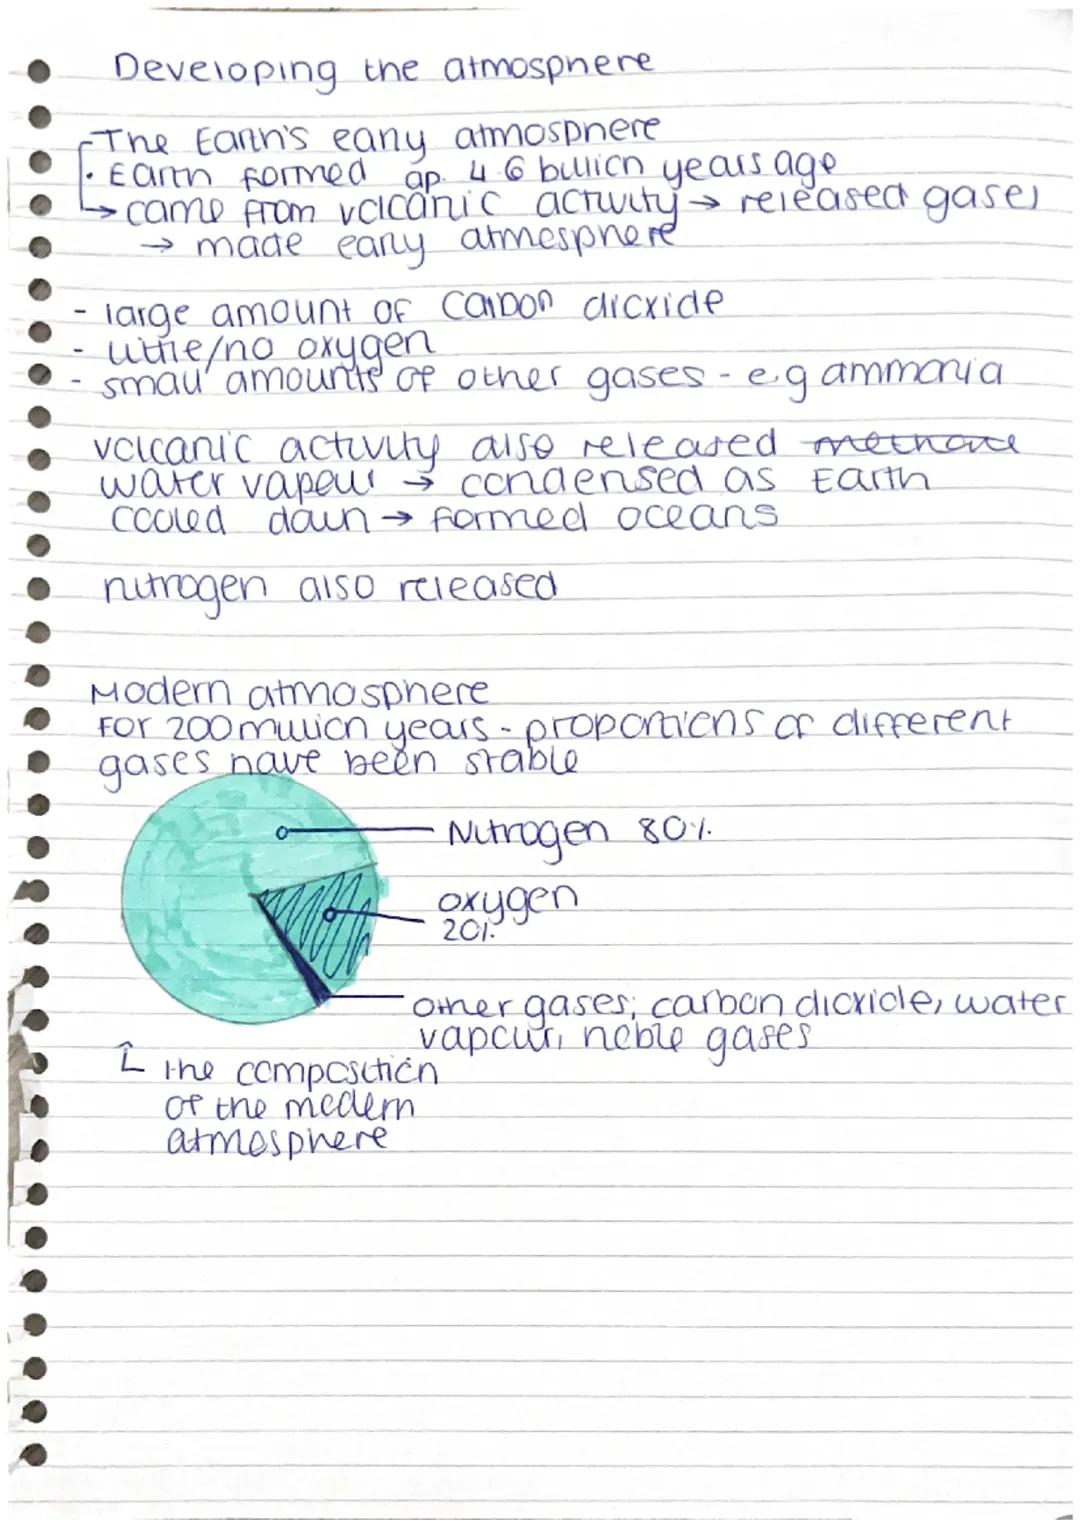 Developing the atmosphere
The Earth's early atmosphere
• Earth formed ap. 4.6 billion years ago
↳ came from volcanic activity → released gases
→ made early atmosphere
- large amount of carbon dioxide
- little/no oxygen
- small amounts of other gases - e.g ammonia
volcanic activity also released methane
water vapour → condensed as Earth
cooled down → formed oceans
nitrogen also released
Modern atmosphere
For 200 million years - proportions of different
gases have been stable
Nitrogen 80%.
oxygen
20%.
other gases; carbon dioxide, water
vapour, noble gases
↑ the composition
of the modern
atmosphere